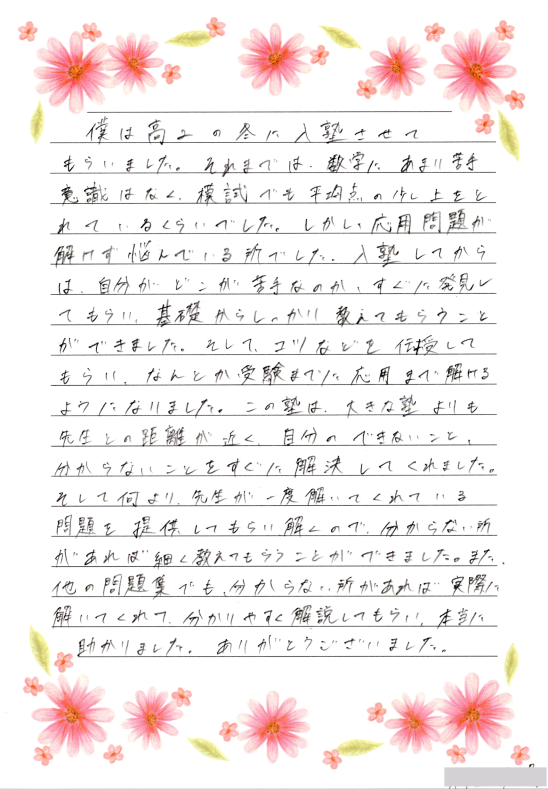 僕は高2の冬に入塾させて
もらいました。それまでは、数学にあまり苦手
意識はなく、模試でも平均点の少し上をと
れているくらいでした。しかし、応用問題が
解けず悩んでいる所でした。入塾してから
は、自分がどこが苦手なのか、すぐに発見し
てもらい、基礎からしっかり教えてもらうこと
ができました。そして、コツなどを伝授して
もらい、なんとか受験までに応用まで解ける
ようになりました。この塾は、大きな塾よりも
先生との距離が近く、自分のできないこと、
分からないことをすぐに解決してくれました。
そして何より、先生が一度解いてくれている
問題を提供してもらい解くので、分からない所
があれば細く教えてもらうことができました。また、
他の問題集でも、分からない所があれば実際に
解いてくれて、分かりやすく解説してもらい、本当に
助かりました。ありがとうございました。